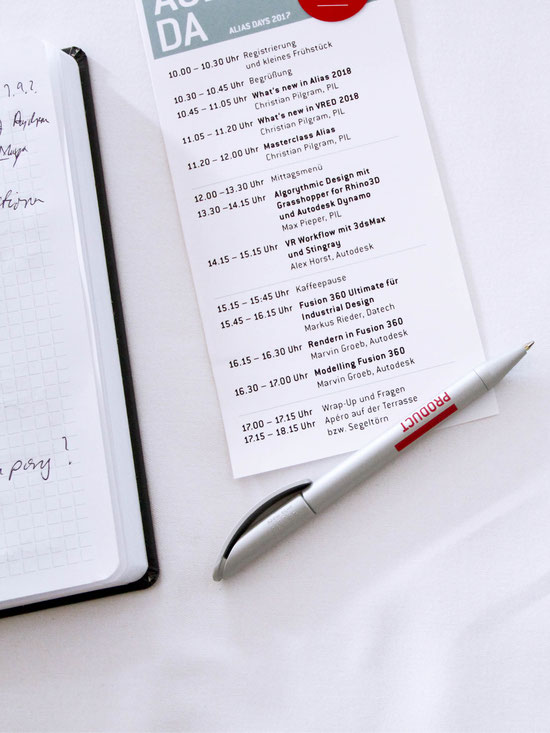 DA
ALIAS DAYS 2017
10.00 – 10.30 Uhr Registrierung
und kleines Frühstück
10.30 – 10.45 Uhr Begrüßung
10.45 – 11.05 Uhr What's new in Alias 2018
Christian Pilgram, PIL
11.05 – 11.20 Uhr What's new in VRED 2018
Christian Pilgram, PIL
11.20 – 12.00 Uhr Masterclass Alias
Christian Pilgram, PIL
12.00 –13.30 Uhr Mittagsmenü
13.30 –14.15 Uhr Algorythmic Design mit
Grasshopper for Rhino3D
und Autodesk Dynamo
Max Pieper, PIL
14.15 – 15.15 Uhr VR Workflow mit 3dsMax
und Stingray
Alex Horst, Autodesk
15.15 – 15:45 Uhr Kaffeepause
15.45 – 16.15 Uhr Fusion 360 Ultimate für
Industrial Design
Markus Rieder, Datech
16.15 – 16.30 Uhr Rendern in Fusion 360
Marvin Groeb, Autodesk
16.30 – 17.00 Uhr Modelling Fusion 360
Marvin Groeb, Autodesk
17.00 – 17.15 Uhr Wrap-Up und Fragen
17.15 – 18.15 Uhr Apéro auf der Terrasse
bzw. Segeltörn
PRODUCT
pany ?